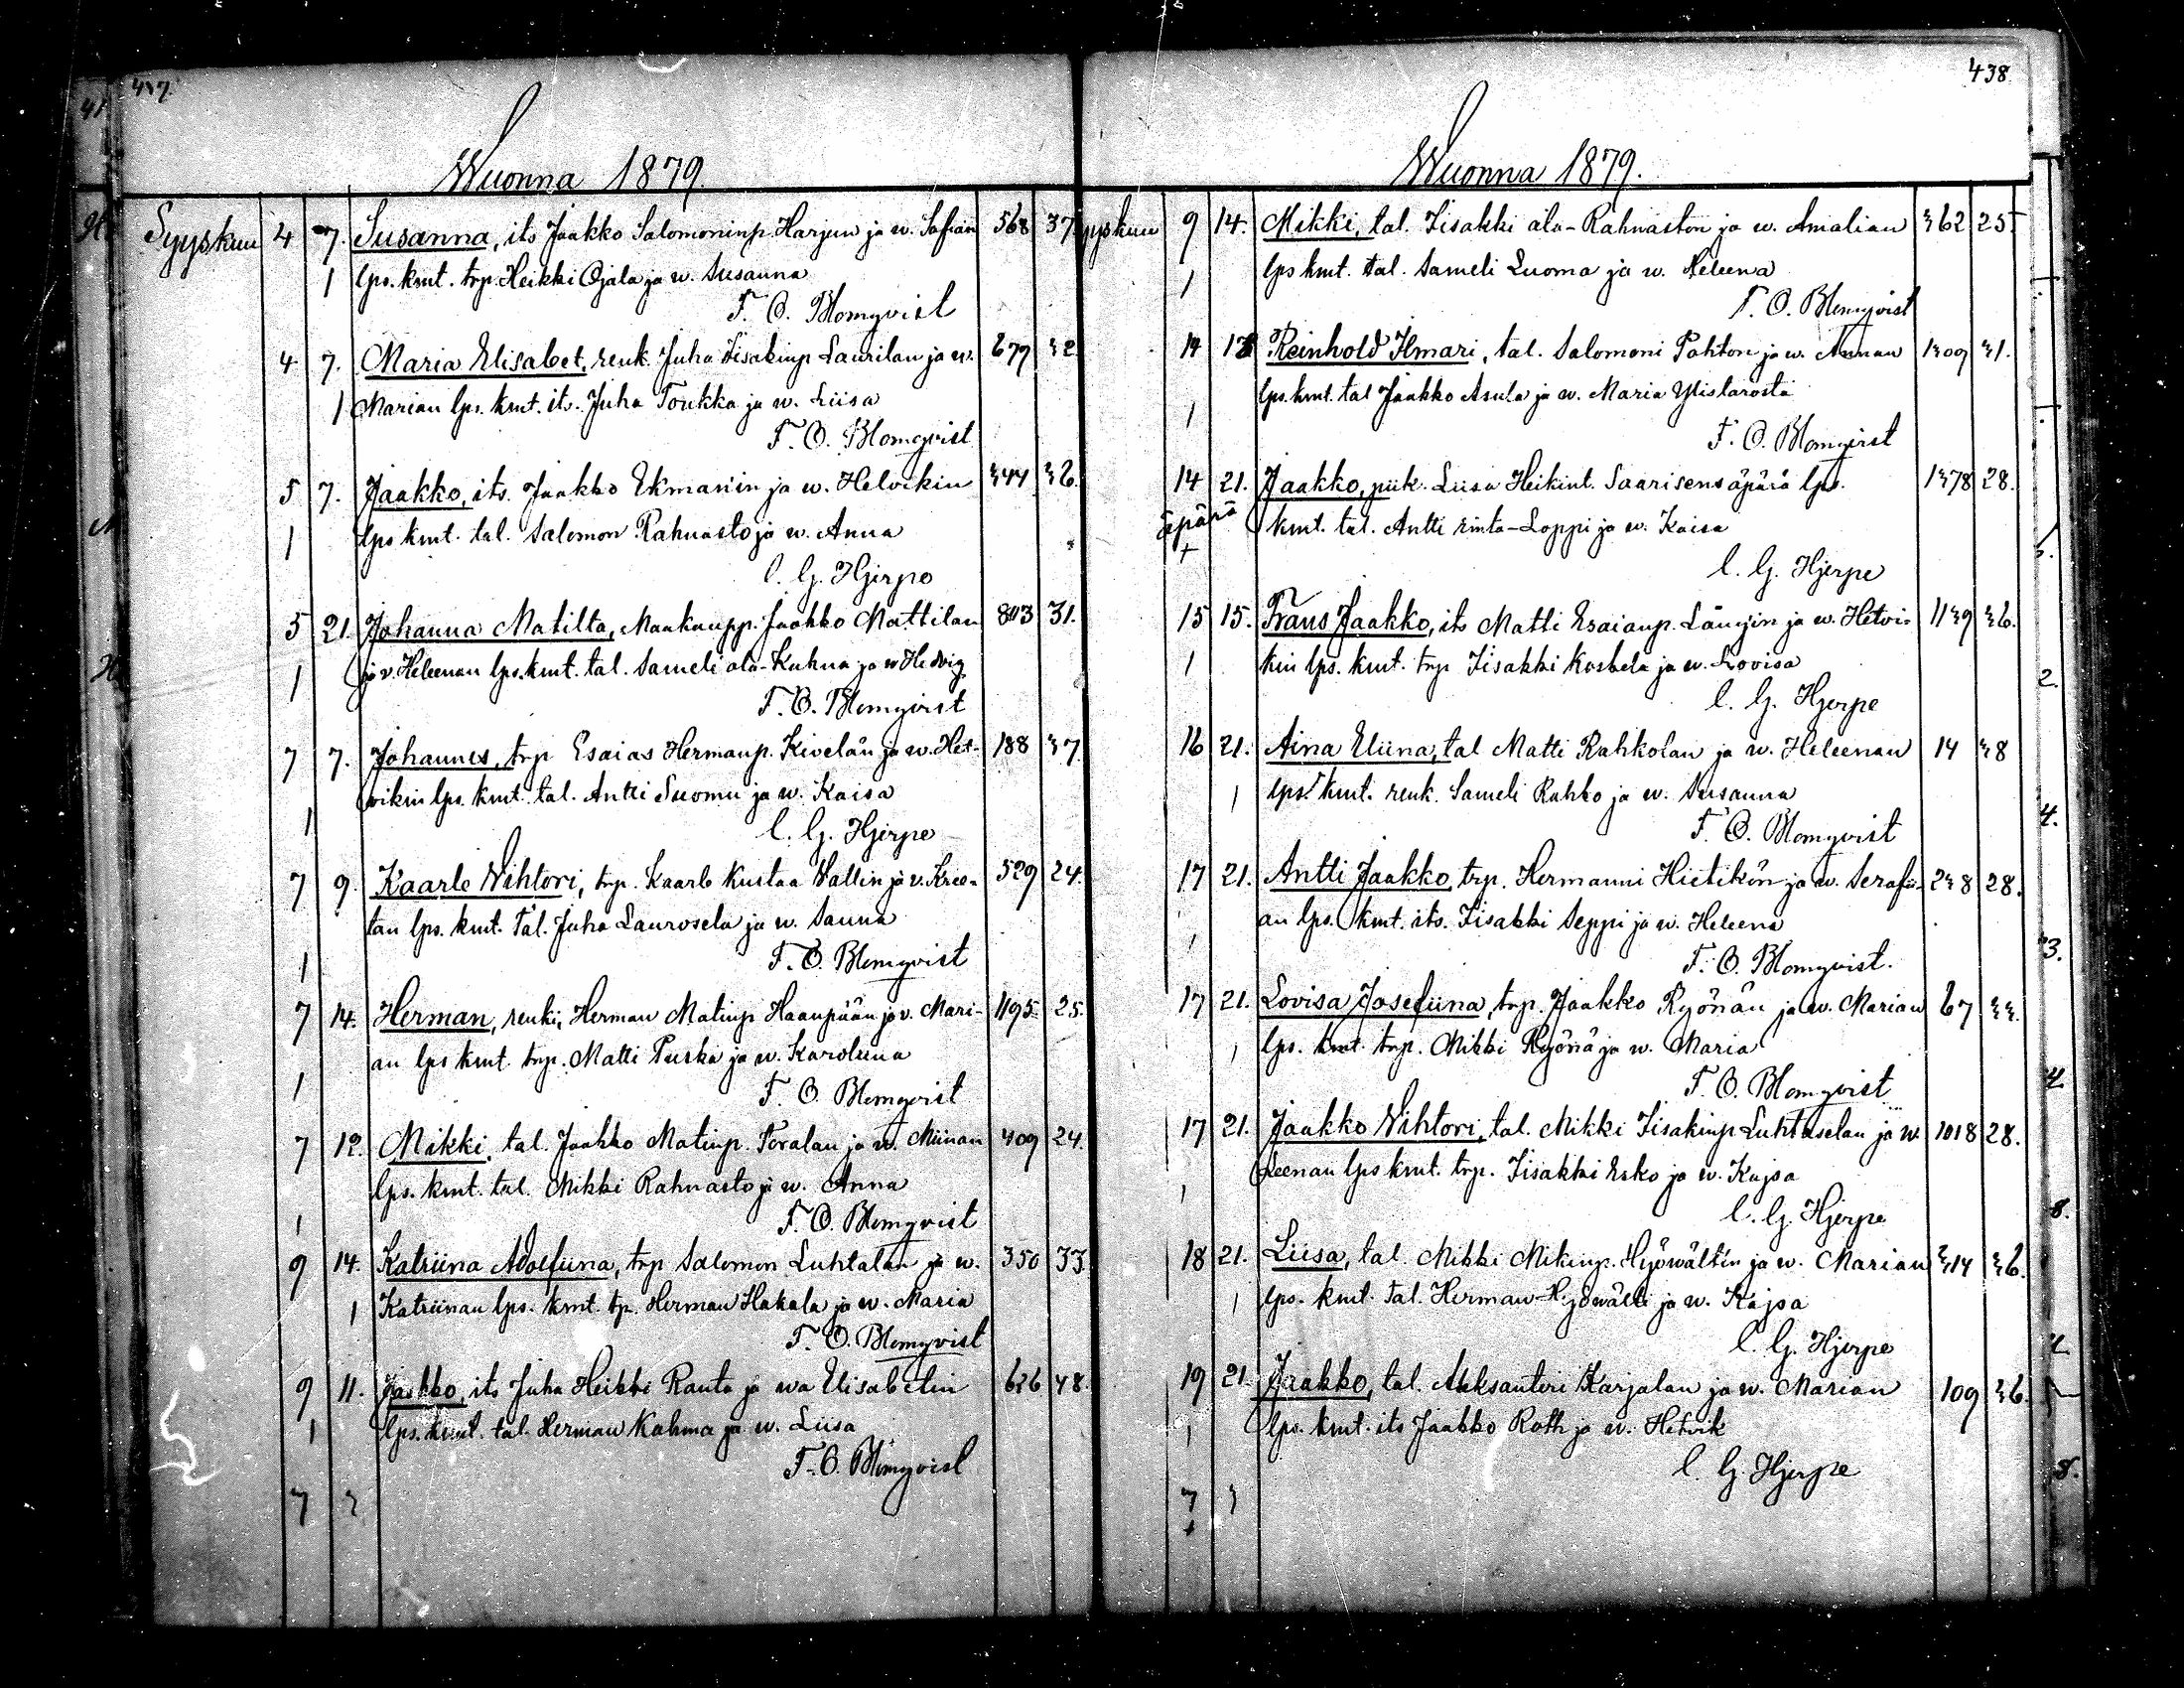 437.
Wuonna 1879.
Syyskuu 4 7. Susanna, its Jaakko Salomoninp. Harjun ja w. Sofian 568 37
1 lps. kmt. trp. Heikki Ojala ja w. Susanna
F. O. Blomqvist
4 7. Maria Elisabet, renk. Juha Iisakinp. Laurilan ja w. 679 32.
1 Marian lps. kmt. its. Juha Toukka ja w. Liisa
F. O. Blomqvist
5 7. Jaakko, its. Jaakko Ekman'in ja w. Helvikin 344 36.
1 lps kmt. tal. Salomon Rahnasto ja w. Anna
C. G. Hjerpe
5 21. Johanna Matilta, Maakaupp. Jaakko Mattilan 843 31.
1 ja v. Heleenan lps. kmt. tal. Sameli ala-Kuhna ja w Hedvig
F. O. Blomqvist
7 7. Johannes, trp Esaias Hermanp. Kivelän ja w. Het- 188 37.
1 vikin lps. kmt. tal. Antti Suomu ja w. Kaisa
C. G. Hjerpe
7 9. Kaarle Vihtori, trp. Kaarle Kustaa Wallin ja v. Kree- 529 24.
tan lps. kmt. Tal. Juha Laurosela ja w. Sanna
1 F. O. Blomqvist
7 14. Herman, renki, Herman Matinp Haanpään ja v. Mari- 1195. 25.
an lps kmt. trp. Matti Puska ja w. Karoliina
1 F. O. Blomqvist
7 12. Mikki, tal. Jaakko Matinp. Toralan ja w. Miinan 409 24.
lps. kmt. tal. Mikki Rahnasto ja w. Anna
1 F. O. Blomqvist
9 14. Katriina Adolfiina, trp Salomon Luhtalan ja w. 350 33
1 Katriinan lps. kmt. tp. Herman Hakala ja w. Maria
F. O. Blomqvist
9 11. Jaakko, its Juha Heikki Ranta ja wa Elisabetin 626 48.
1 lps. kmt. tal. Herman Kahma ja w. Liisa
F. O. Blomqvist
7 3
438
Wuonna 1879.
yyskuu 9 14. Mikki, tal. Iisakki ala-Rahnaston ja w. Amalian 362 25.
1 lps kmt. tal. Sameli Luoma ja w. Heleena
F. O. Blomqvist
14 18 Reinhold Ilmari, tal. Salomoni Pahton ja w. Annan 1309 31.
1 lps. kmt. tal Jaakko Asula ja w. Maria Ylistarosta
F. O. Blomqvist
14 21. Jaakko, piik. Liisa Heikint. Saarisens äpärä lps. 1378 28.
äpärä kmt. tal. Antti rinta-Loppi ja w. Kaisa
+ C. G. Hjerpe
15 15. Frans Jaakko, its Matti Esaianp. Längin ja w. Hetvi- 1139 36.
1 kin lps. kmt. trp Iisakki Koskela ja w. Lovisa
C. G. Hjerpe
16 21. Aina Eliina, tal Matti Rahkolan ja w. Heleenan 14 38
1 lps. kmt. renk. Sameli Rahko ja w. Susanna
F. O. Blomqvist
17 21. Antti Jaakko, trp. Hermanni Hietikön ja w. Serafii- 238 28.
an lps. kmt. its. Iisakki Seppi ja w. Heleena
1 F. O. Blomqvist.
17 21. Lovisa Josefiina, trp. Jaakko Ryönän ja w. Marian 67 33.
1 lps. kmt. trp. Mikki Ryönä ja w. Maria
F. O. Blomqvist
17 21. Jaakko Vihtori, tal. Mikki Iisakinp Luhtaselan ja w. 1018 28.
1 Leenan lps kmt. trp. Iisakki Esko ja w. Kajsa
C. G. Hjerpe
18 21. Liisa, tal. Mikki Mikinp. Hyöwältin ja w. Marian 314 36.
1 lps. kmt. Tal. Herman Hyöwälti ja w. Kajsa
C. G. Hjerpe
19 21. Jaakko, tal. Aleksanteri Karjalan ja w. Marian 109 36.
1 lps. kmt. its Jaakko Roth ja w. Hetvik
C. G. Hjerpe
7 3
+